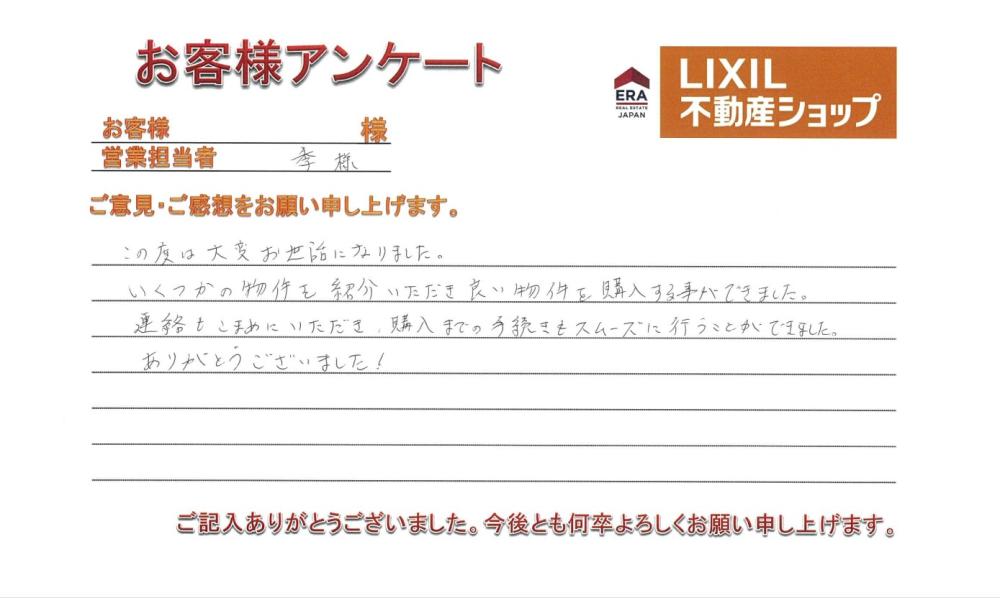 お客様アンケート
ERA
REAL ESTATE
JAPAN
LIXIL
不動産ショップ
お客様 様
営業担当者 李 様
ご意見・ご感想をお願い申し上げます。
この度は大変お世話になりました。
いくつかの物件を紹介いただき良い物件を購入する事ができました。
連絡もこまめにいただき、購入までの手続きもスムーズに行うことができました。
ありがとうございました!
ご記入ありがとうございました。今後とも何卒よろしくお願い申し上げます。